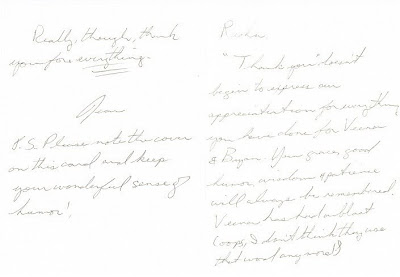 "Thank you" doesn't
begin to express our
appreciation for everything
you have done for
& Bryan. Your grace, good
humor, wisdom & patience
will always be remembered.
has had a blast
(oops, I don't think they use
that word anymore!)
Really, though, thank
you for everything.
Jean
P.S. Please note the cover
on this card and keep
your wonderful sense of
humor!